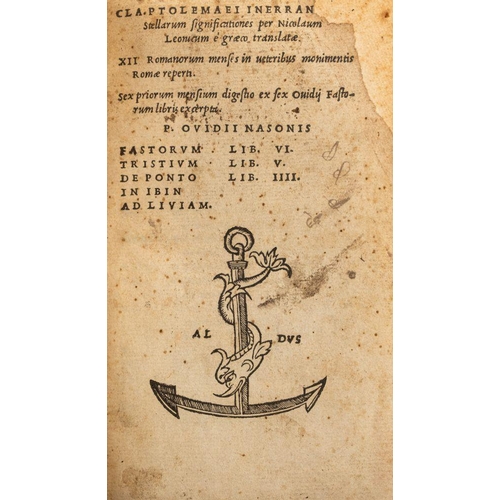 CLA. PTOLEMAEI INERRAN
Stellarum significationes per Nicolaum
Leonicum è græco translatæ.
XII Romanorum menses in ueteribus monimentis
Romæ reperti.
Sex priorum mensium digestio ex sex Ouidij Fasto-
rum libris excerpta.
P. OVIDII NASONIS
FASTORVM LIB. VI.
TRISTIVM LIB. V.
DE PONTO LIB. IIII.
IN IBIN
AD LIVIAM.
AL DVS